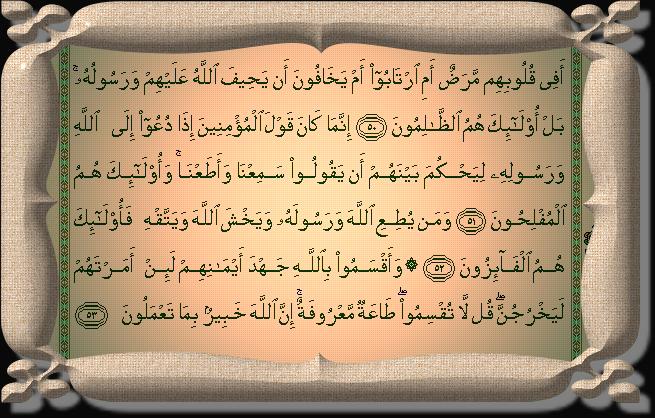 أَفِى قُلُوبِهِم مَّرَضٌ أَمِ ٱرْتَابُوٓا۟ أَمْ يَخَافُونَ أَن يَحِيفَ ٱللَّهُ عَلَيْهِمْ وَرَسُولُهُۥ ۚ
بَلْ أُو۟لَـٰٓئِكَ هُمُ ٱلظَّـٰلِمُونَ ٥٠ إِنَّمَا كَانَ قَوْلَ ٱلْمُؤْمِنِينَ إِذَا دُعُوٓا۟ إِلَى ٱللَّهِ
وَرَسُولِهِۦ لِيَحْكُمَ بَيْنَهُمْ أَن يَقُولُوا۟ سَمِعْنَا وَأَطَعْنَا ۚ وَأُو۟لَـٰٓئِكَ هُمُ
ٱلْمُفْلِحُونَ ٥١ وَمَن يُطِعِ ٱللَّهَ وَرَسُولَهُۥ وَيَخْشَ ٱللَّهَ وَيَتَّقْهِ فَأُو۟لَـٰٓئِكَ
هُمُ ٱلْفَآئِزُونَ ٥٢ ۞ وَأَقْسَمُوا۟ بِٱللَّهِ جَهْدَ أَيْمَـٰنِهِمْ لَئِنْ أَمَرْتَهُمْ
لَيَخْرُجُنَّ ۖ قُل لَّا تُقْسِمُوا۟ ۖ طَاعَةٌ مَّعْرُوفَةٌ ۚ إِنَّ ٱللَّهَ خَبِيرٌۢ بِمَا تَعْمَلُونَ ٥٣